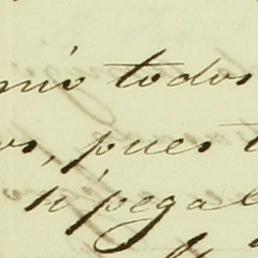 mio todos
os, pues t
si pegal